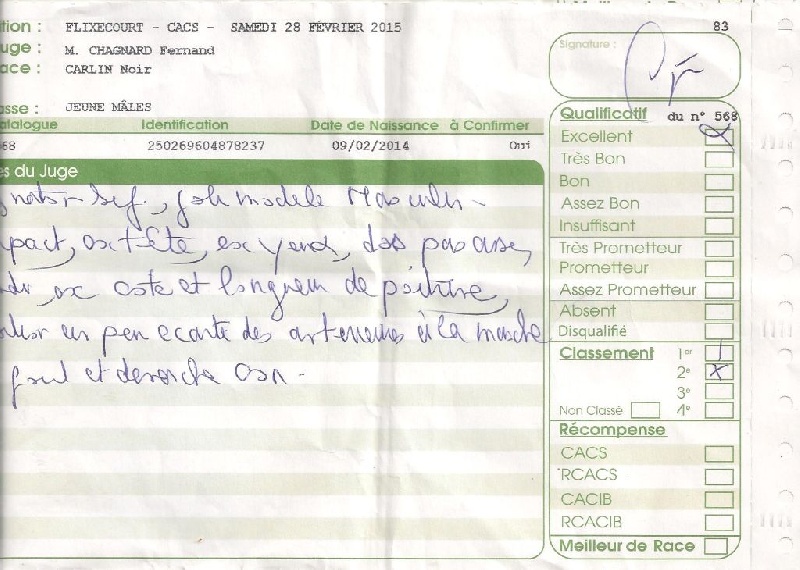 ition : FLIXECOURT - CACS - SAMEDI 28 FÉVRIER 2015
83
uge : M. CHAGNARD Fernand
ace : CARLIN Noir
Signature :
asse : JEUNE MÂLES
atalogue Identification Date de Naissance à Confirmer
68 250269604878237 09/02/2014 Oui
es du Juge
joli modèle Masculin -
pact, ex tête, ex yeux, dos pas assez
ex cote et longueur de poitrine,
un peu ecarté des anterieurs à la marche
poil et demarche
Qualificatif du n° 568
Excellent
Très Bon
Bon
Assez Bon
Insuffisant
Très Prometteur
Prometteur
Assez Prometteur
Absent
Disqualifié
Classement 1er
2e X
3e
Non Classé 4e
Récompense
CACS
RCACS
CACIB
RCACIB
Meilleur de Race